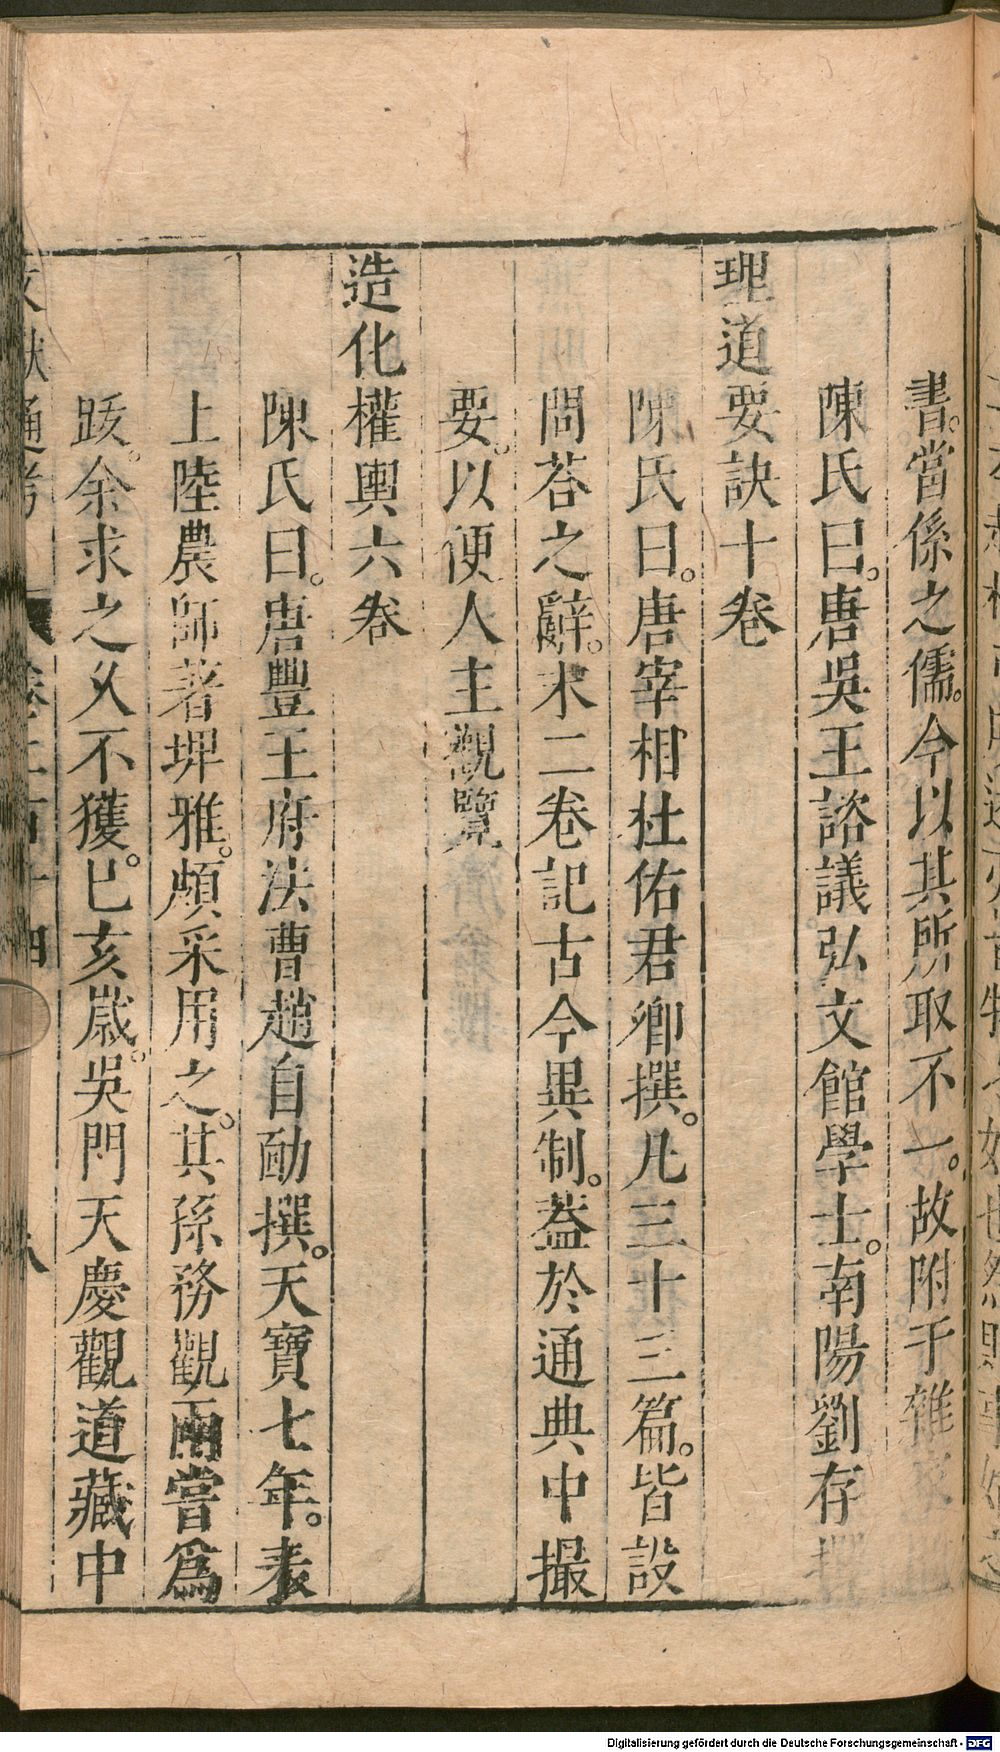 書。當係之儒。今以其所取不一。故附于雜
陳氏曰。唐吳王諮議弘文館學士。南陽劉存
理道要訣十卷
陳氏曰。唐宰相杜佑君卿撰。凡三十三篇。皆設
問荅之辭。末二卷記古今異制。葢於通典中撮
要。以便人主觀覽
造化權輿六卷
陳氏曰。唐豐王府法曹趙自勔撰。天寶七年。表
上陸農師著埤雅。頗采用之。其孫務觀兩嘗爲
跋。余求之久不獲。已亥歲。吳門天慶觀道藏中
文獻通考 卷二百十四 八
Digitalisierung gefördert durch die Deutsche Forschungsgemeinschaft - DFG